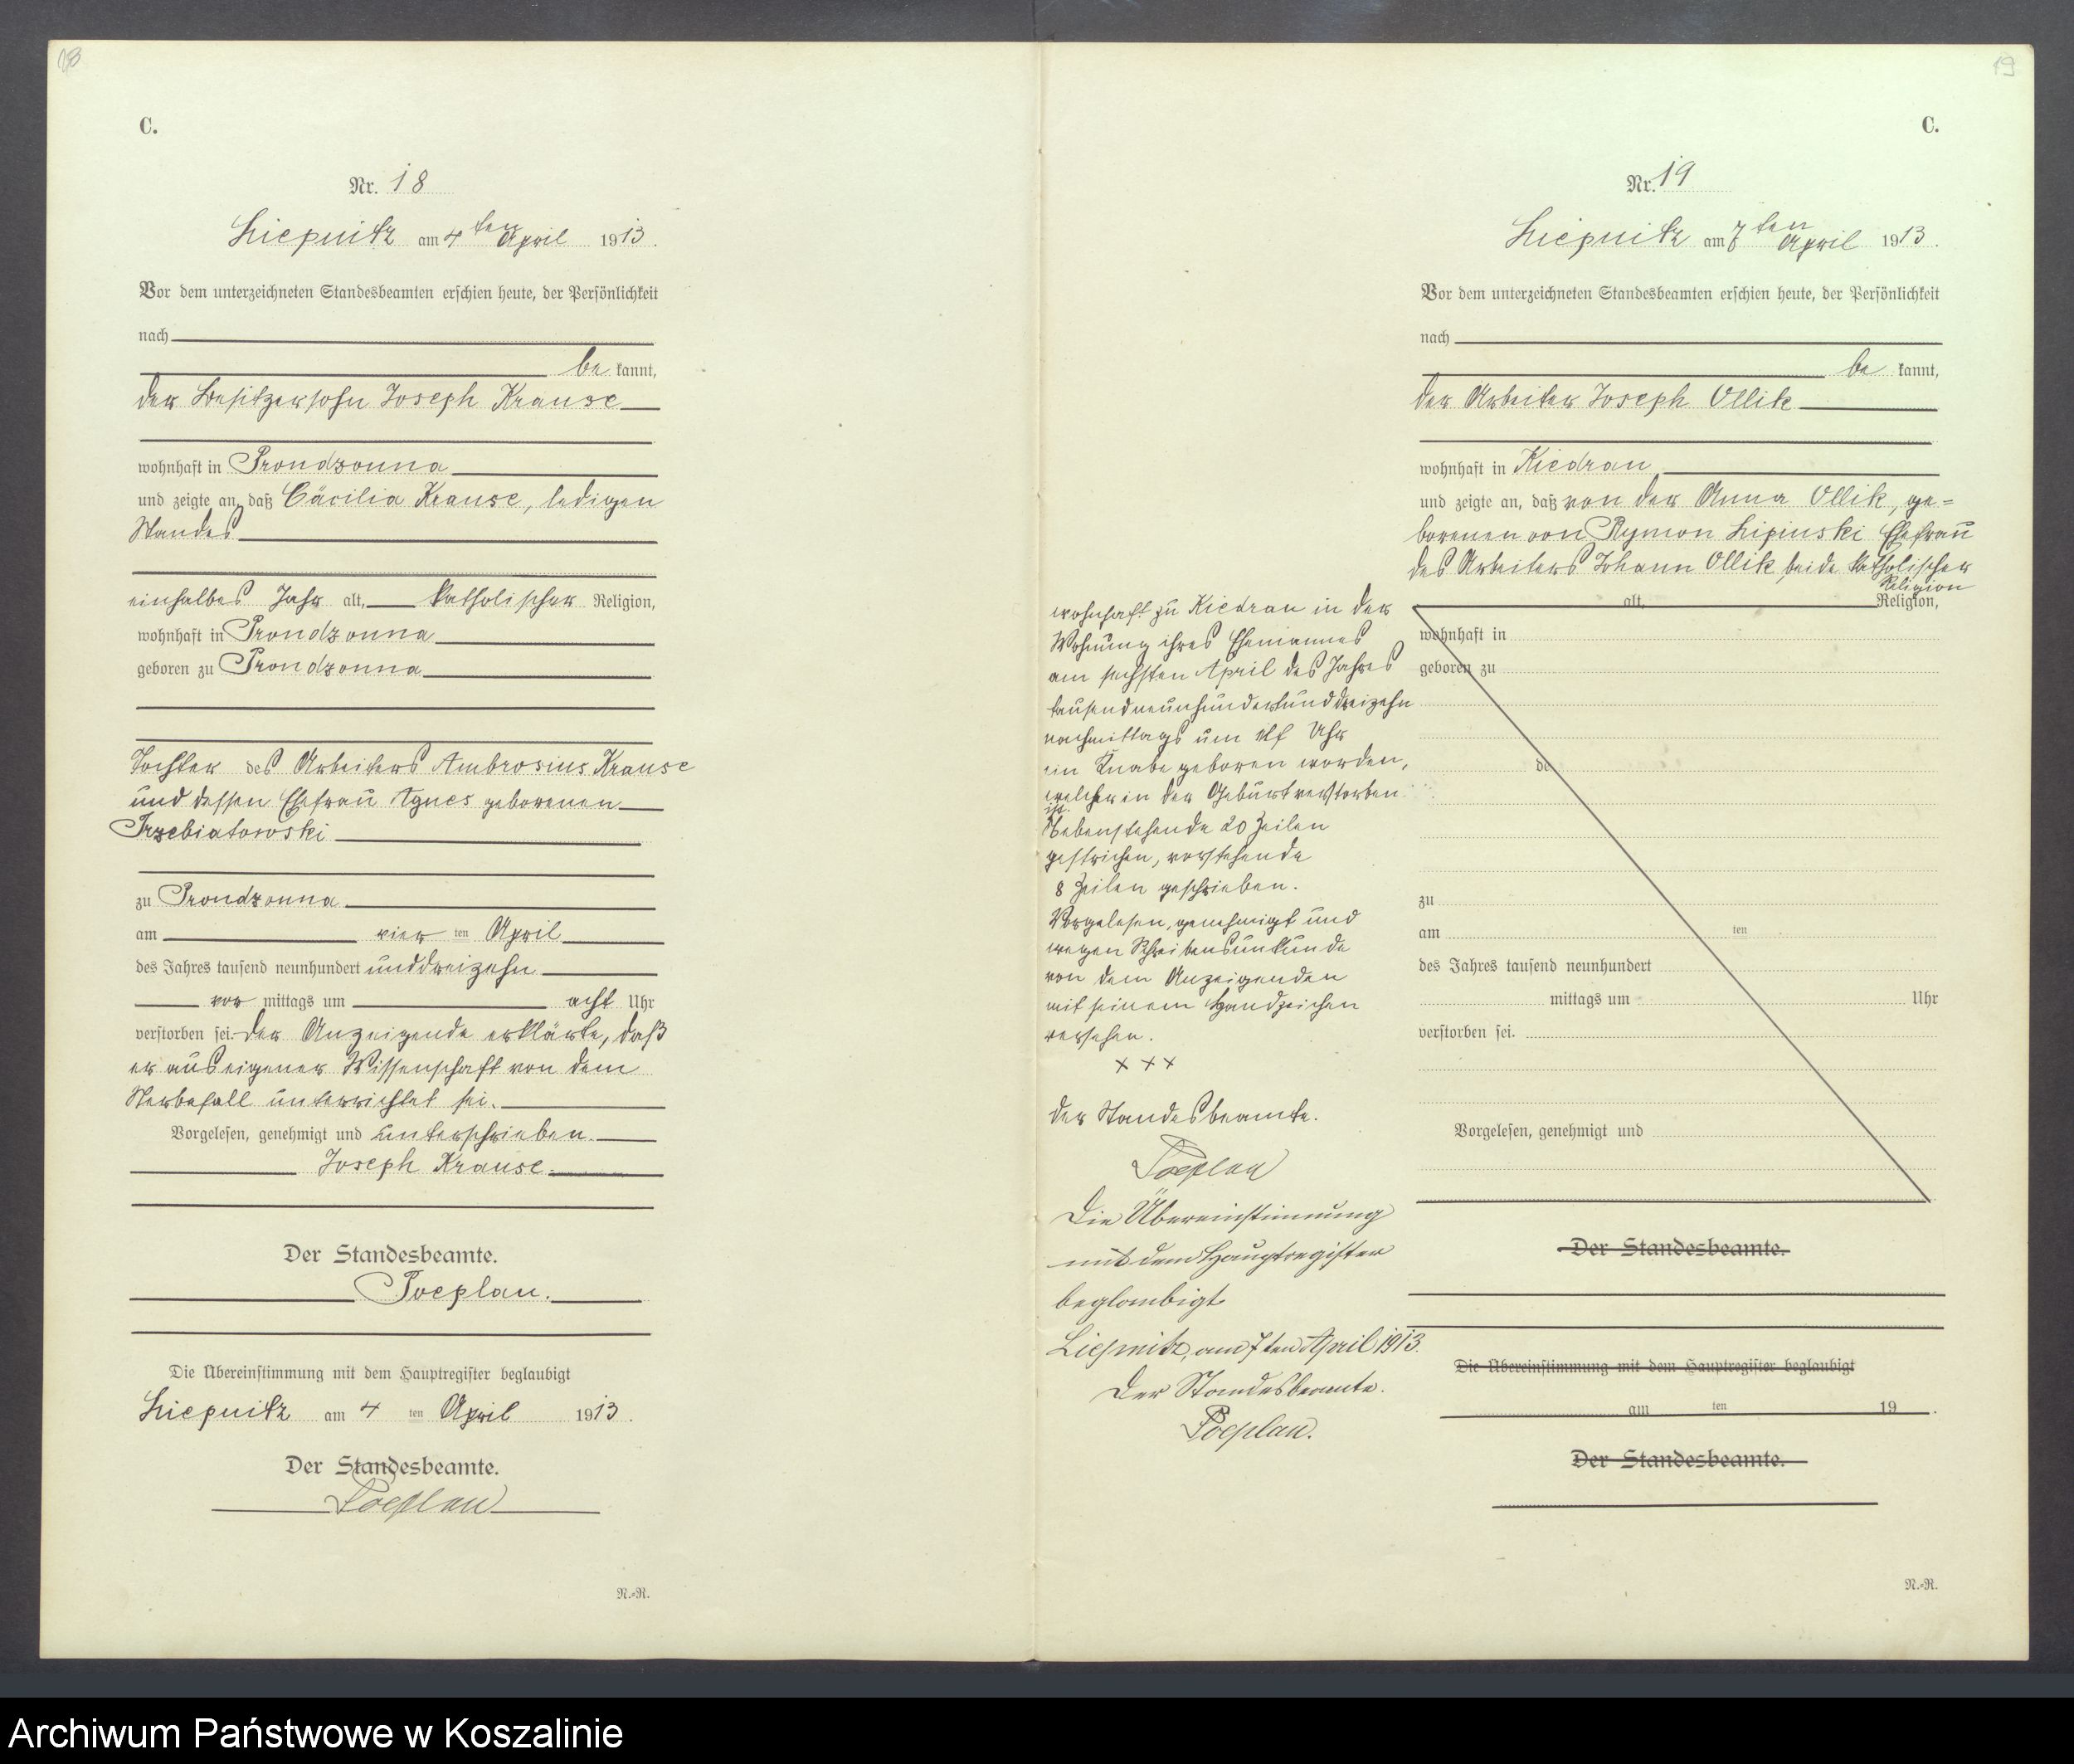 18
C.
Nr. 18
Liepnitz am 4ten April 1913.
Vor dem unterzeichneten Standesbeamten erschien heute, der Persönlichkeit
nach
be kannt,
der Besitzersohn Joseph Krause
wohnhaft in Prondzonna
und zeigte an, daß Cäcilia Krause, ledigen
Standes
einhalbes Jahr alt, katholischer Religion,
wohnhaft in Prondzonna
geboren zu Prondzonna
Tochter des Arbeiters Ambrosius Krause
und dessen Ehefrau Agnes geborenen
Trzebiatowski
zu Prondzonna
am vier ten April
des Jahres tausend neunhundert unddreizehn
vor mittags um acht Uhr
verstorben sei. Der Anzeigende erklärte, daß
er aus eigener Wissenschaft von dem
Sterbefall unterrichtet sei.
Vorgelesen, genehmigt und unterschrieben.
Joseph Krause.
Der Standesbeamte.
Poeplau.
Die Übereinstimmung mit dem Hauptregister beglaubigt
Liepnitz am 4 ten April 1913.
Der Standesbeamte.
Poeplau
N.-R.
19
C.
Nr. 19
Liepnitz am 7ten April 1913.
Vor dem unterzeichneten Standesbeamten erschien heute, der Persönlichkeit
nach
be kannt,
der Arbeiter Joseph Ollik
wohnhaft in Kiedrau
und zeigte an, daß von der Anna Ollik, ge=
borenen von Rymon Lipinski Ehefrau
des Arbeiters Johann Ollik, beide katholischer
Religion
alt, Religion,
wohnhaft in
geboren zu
de
zu
am ten
des Jahres tausend neunhundert
mittags um Uhr
verstorben sei.
Vorgelesen, genehmigt und
Der Standesbeamte.
Die Übereinstimmung mit dem Hauptregister beglaubigt
am ten 19 .
Der Standesbeamte.
N.-R.
wohnhaft zu Kiedrau in der
Wohnung ihres Ehemannes
am sechsten April des Jahres
tausendneunhundertunddreizehn
nachmittags um elf Uhr
ein Knabe geboren worden,
welcher in der Geburt verstorben
ist.
Nebenstehende 20 Zeilen
gestrichen, vorstehende
8 Zeilen geschrieben.
Vorgelesen, genehmigt und
wegen Schreibensunkunde
von dem Anzeigenden
mit seinem Handzeichen
versehen.
+ + +
Der Standesbeamte.
Poeplau
Die Übereinstimmung
mit dem Hauptregister
beglaubigt
Liepnitz, am 7ten April 1913.
Der Standesbeamte.
Poeplau.
Archiwum Państwowe w Koszalinie